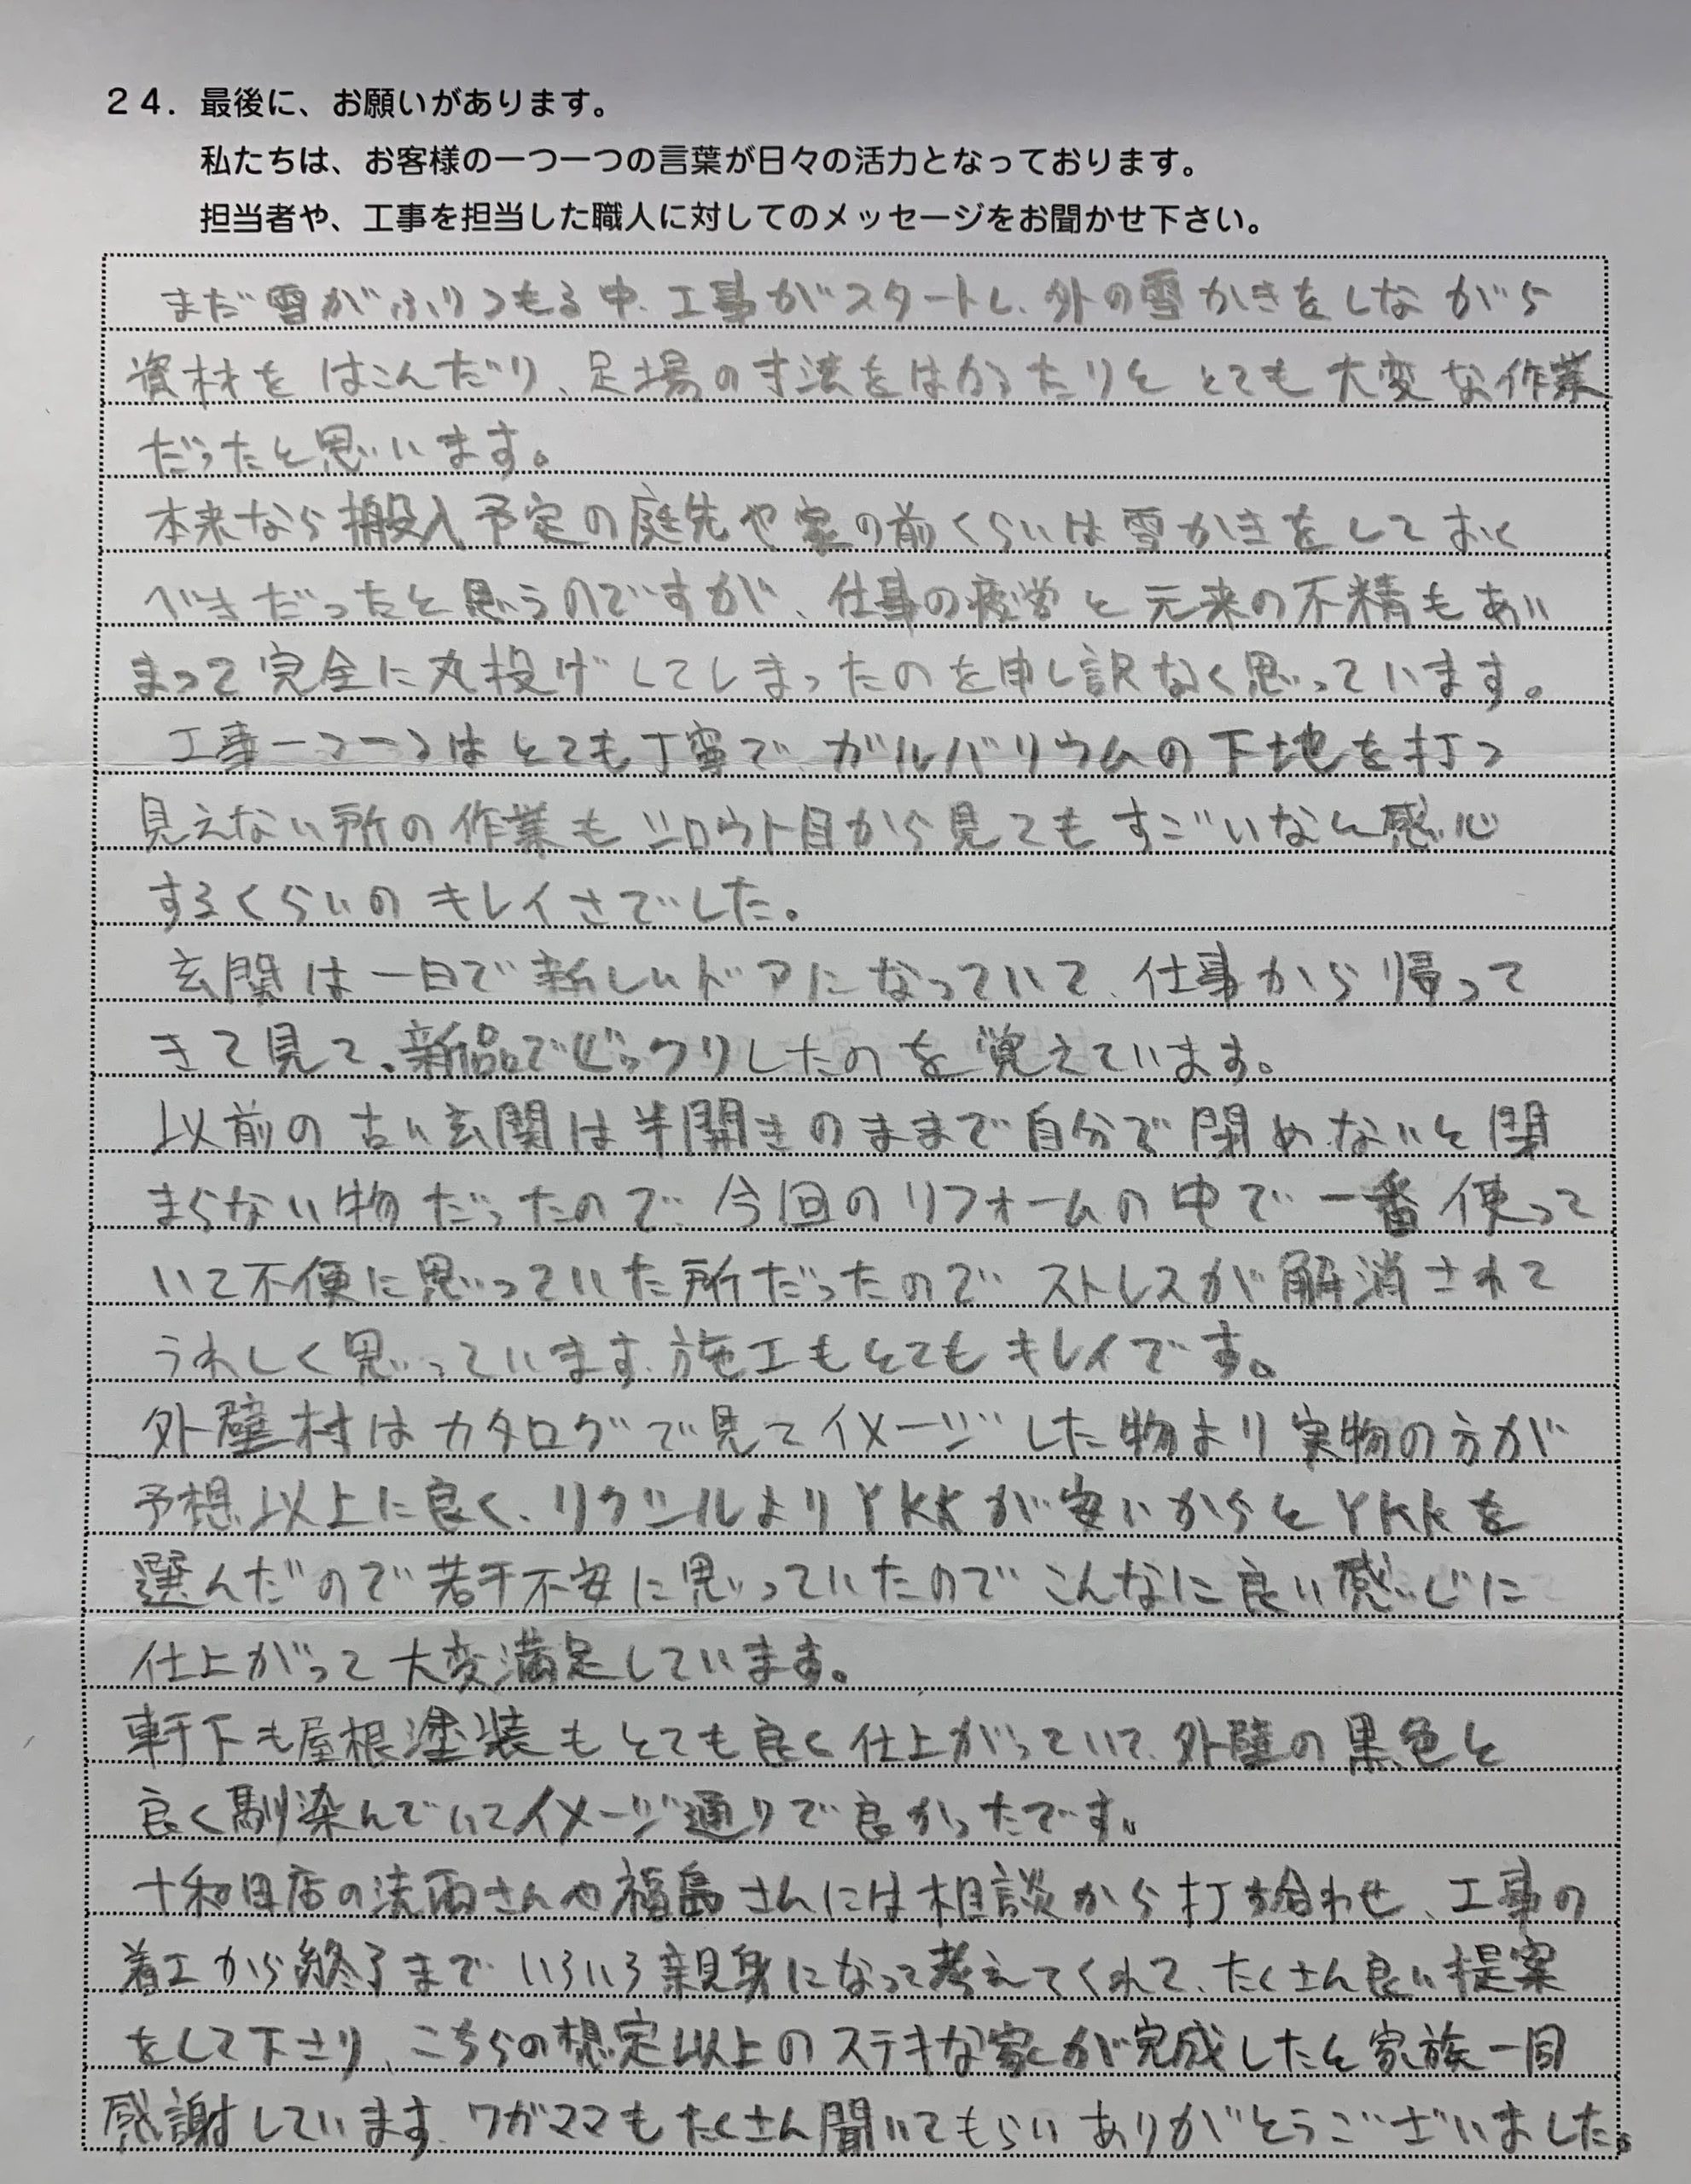 24. 最後に、お願いがあります。
私たちは、お客様の一つ一つの言葉が日々の活力となっております。
担当者や、工事を担当した職人に対してのメッセージをお聞かせ下さい。
まだ雪がふりつもる中、工事がスタートし、外の雪かきをしながら
資材をはこんだり、足場の寸法をはかったりととても大変な作業
だったと思います。
本来なら搬入予定の庭先や家の前くらいは雪かきをしておく
べきだったと思うのですが、仕事の疲労と元来の不精もあい
まって完全に丸投げしてしまったのを申し訳なく思っています。
工事一つ一つはとても丁寧で、ガルバリウムの下地を打つ
見えない所の作業もシロウト目から見てもすごいなと感心
するくらいのキレイさでした。
玄関は一日で新しいドアになっていて、仕事から帰って
きて見て、新品でビックリしたのを覚えています。
以前の古い玄関は半開きのままで自分で閉めないと閉
まらない物だったので、今回のリフォームの中で一番使って
いて不便に思っていた所だったのでストレスが解消されて
うれしく思っています。施工もとてもキレイです。
外壁材はカタログで見てイメージした物より実物の方が
予想以上に良く、リクシルよりYKKが安いからとYKKを
選んだので若干不安に思っていたのでこんなに良い感じに
仕上がって大変満足しています。
軒下も屋根塗装もとても良く仕上がっていて、外壁の黒色と
良く馴染んでいてイメージ通りで良かったです。
十和田店の法雨さんや福島さんには相談から打ち合わせ、工事の
着工から終了まで、いろいろ親身になって考えてくれて、たくさん良い提案
をして下さり、こちらの想定以上のステキな家が完成したと家族一同
感謝しています。ワガママもたくさん聞いてもらいありがとうございました。